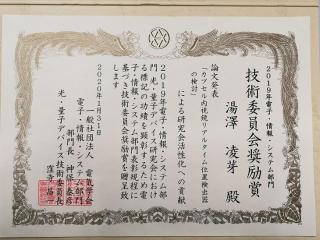 2019年電子・情報・システム部門
技術委員会奨励賞
湯澤 凌芽 殿
論文発表
「カプセル内視鏡リアルタイム位置検出器
の検討」
による研究会活性化への貢献
2019年電子・情報・システム部
門 光・量子デバイス研究会におけ
る標記の功績を顕彰するため電
子・情報・システム部門表彰規程に
基づき技術委員会奨励賞を贈呈致
します
2020年1月31日
一般社団法人 電気学会
電子・情報・システム部門
部門長
光・量子デバイス技術委員会
委員長